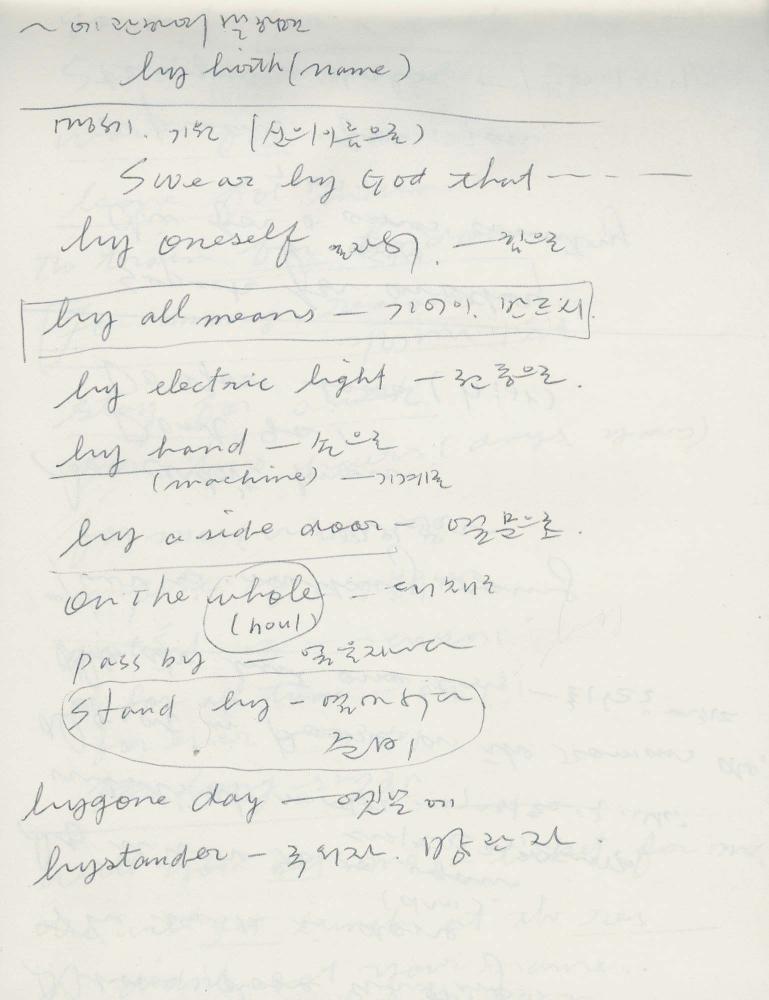 ~ 에 관하여 말하면
by birth (name)
맹세. 기원 (신의 이름으로)
Swear by God that - - -
by oneself 혼자서. — 힘으로
by all means — 기어이. 반드시.
by electric light — 전등으로.
by hand — 손으로
(machine) — 기계로
by a side door — 옆문으로.
on the whole — 대체로
(noul)
pass by — 옆을 지나다
Stand by — 옆에 서다
준비
bygone day — 옛날에
bystander — 국외자. 방관자.